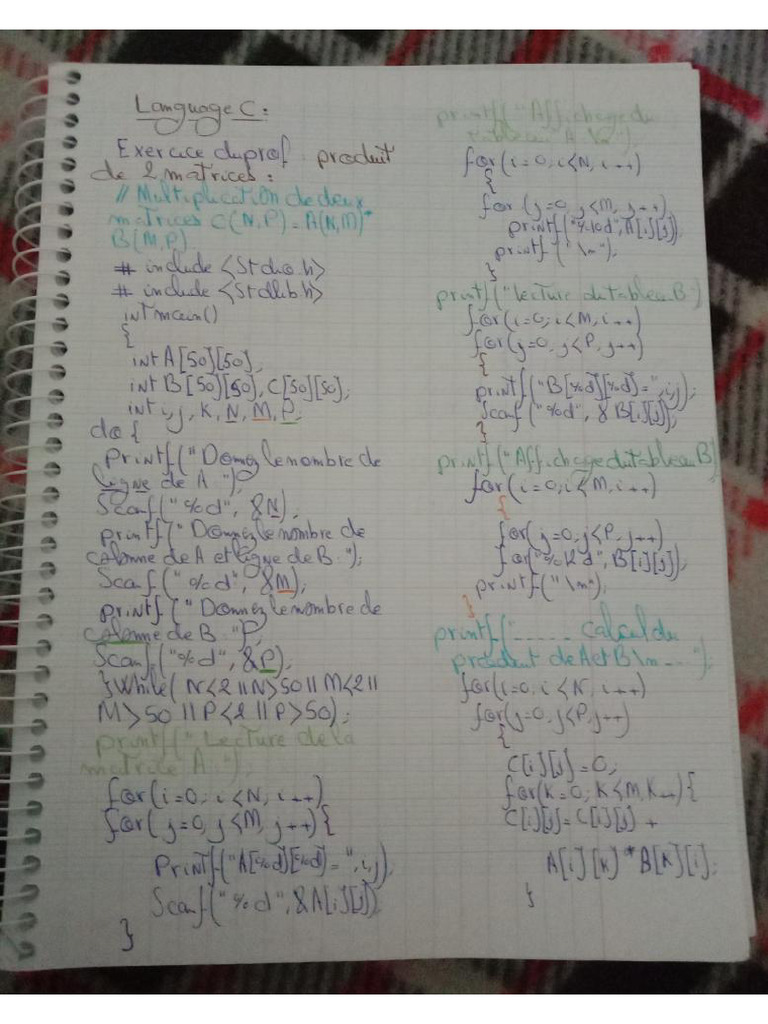 Language C :
Exercice du prof produit
de 2 matrices :
// Multiplication de deux
matrices C(N,P) = A(N,M)*
B(M,P)
# include <Stdio.h>
# include <Stdlib.h>
int main()
{
int A[50][50],
int B[50][50], C[50][50];
int i,j, K, N, M, P,
do {
printf("Donnez le nombre de
ligne de A ");
Scanf("%d", &N),
printf("Donnez le nombre de
colonne de A et ligne de B. ");
Scanf("%d", &M);
printf("Donnez le nombre de
colonne de B. "P,
Scanf("%d", &P),
}While( N<2 || N>50 || M<2 ||
M>50 || P<2 || P>50);
printf("Lecture de la
matrice A : ");
for(i=0; i<N, i++)
for(j=0, j<M, j++){
Printf("A[%d][%d] = ", i,j),
Scanf("%d", &A[i][j])
}
printf("Affichage du
tableau A \n");
for(i=0, i<N, i++)
{
for (j=0, j<M, j++)
printf("%10d", A[i][j]),
printf("\n");
}
printf("lecture du tableau B:)
for(i=0; i<M, i++)
for(j=0, j<P, j++)
{
printf("B[%d][%d] = ", i,j);
Scanf("%d", &B[i][j]);
}
printf("Affichage du tableau B)
for(i=0; i<M, i++)
{
for(j=0, j<P, j++)
for("% d", B[i][j]),
printf("\n"),
}
printf("----- calcul du
produit de A et B \n ---");
for(i=0, i<N, i++)
for(j=0, j<P, j++)
{
C[i][j]=0,
for(K=0, K<M, K++){
C[i][j]=C[i][j] +
A[i][K] * B[K][i];
}